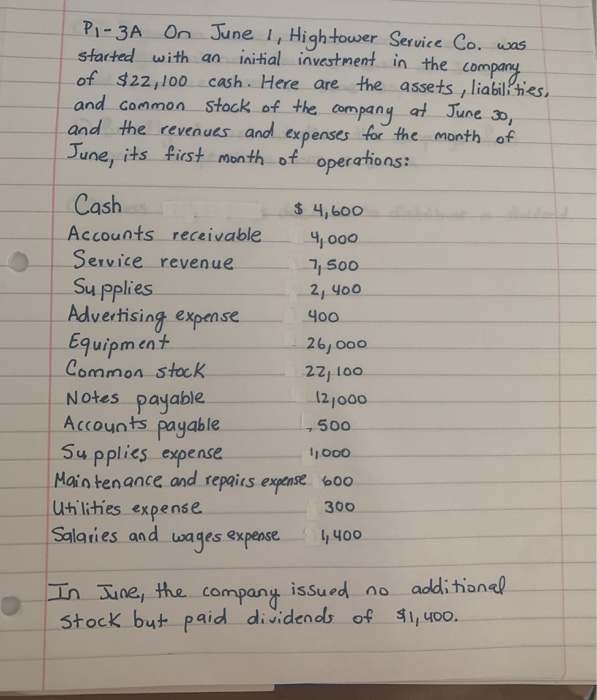 P1-3A On June 1, Hightower Service Co. was
started with an initial investment in the company
of $22,100 cash. Here are the assets, liabilities,
and common stock of the company at June 30,
and the revenues and expenses for the month of
June, its first month of operations:
Cash $ 4,600
Accounts receivable 4,000
Service revenue 7,500
Supplies 2,400
Advertising expense 400
Equipment 26,000
Common stock 22,100
Notes payable 12,000
Accounts payable 500
Supplies expense 1,000
Maintenance and repairs expense 600
Utilities expense 300
Salaries and wages expense 1,400
In June, the company issued no additional
stock but paid dividends of $1,400.